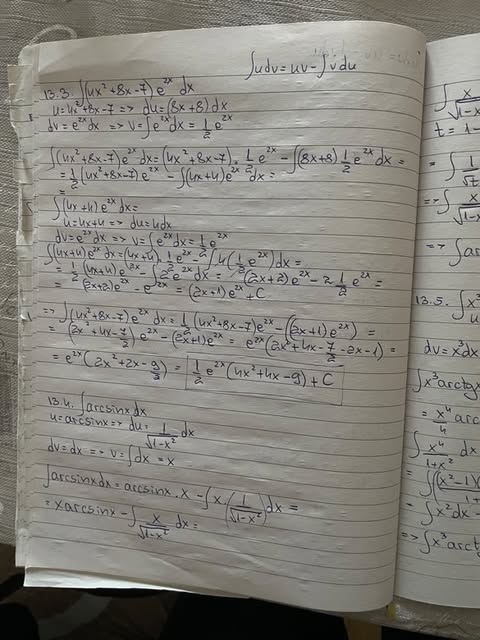 ∫udv = uv - ∫vdu
13.3. ∫(4x²+8x-7) e^{2x} dx
u=4x²+8x-7 => du=(8x+8)dx
dv=e^{2x}dx => v=∫e^{2x}dx = 1/2 e^{2x}
∫(4x²+8x-7)e^{2x}dx = (4x²+8x-7)·1/2 e^{2x} - ∫(8x+8) 1/2 e^{2x}dx =
= 1/2(4x²+8x-7)e^{2x} - ∫(4x+4)e^{2x}dx =
=
∫(4x+4)e^{2x}dx =
u=4x+4 => du=4dx
dv=e^{2x}dx => v=∫e^{2x}dx = 1/2 e^{2x}
∫(4x+4)e^{2x}dx = (4x+4)·1/2 e^{2x} - ∫4(1/2 e^{2x})dx =
= 1/2(4x+4)e^{2x} - ∫2e^{2x}dx = (2x+2)e^{2x} - 2·1/2 e^{2x} =
= (2x+2)e^{2x} - e^{2x} = (2x+1)e^{2x} + C
=> ∫(4x²+8x-7)e^{2x}dx = 1/2(4x²+8x-7)e^{2x} - (2x+1)e^{2x}) =
= (2x²+4x-7/2)e^{2x} - (2x+1)e^{2x} = e^{2x}(2x²+4x-7/2-2x-1) =
= e^{2x}(2x²+2x-9/2) = 1/2 e^{2x}(4x²+4x-9)+C
13.4. ∫arcsinxdx
u=arcsinx => du=1/√(1-x²) dx
dv=dx => v=∫dx = x
∫arcsinxdx = arcsinx·x - ∫x·(1/√(1-x²))dx =
= xarcsinx - ∫x/√(1-x²) dx =
∫ x/√(1-x
t=1-
= ∫ 1/√t
=> ∫ x/√(1-x
=> ∫a
13.5. ∫x³
u
dv=x³dx
∫x³arctgx
= x⁴/4 arc
∫ x⁴/(1+x²) dx
= ∫((x²-1)(
= ∫x²dx -
=> ∫x³arctg